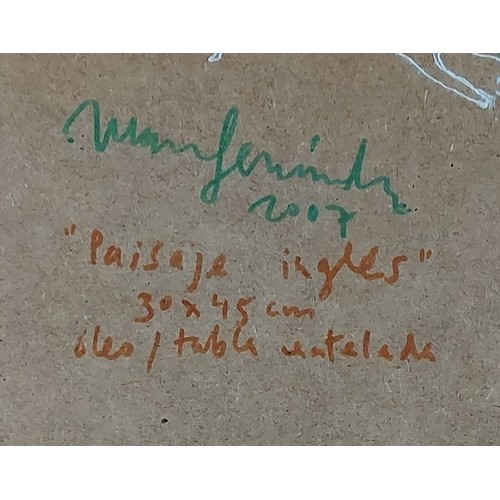 2007
"Paisaje ingles"
30 x 45 cm
óleo / tabla entelada